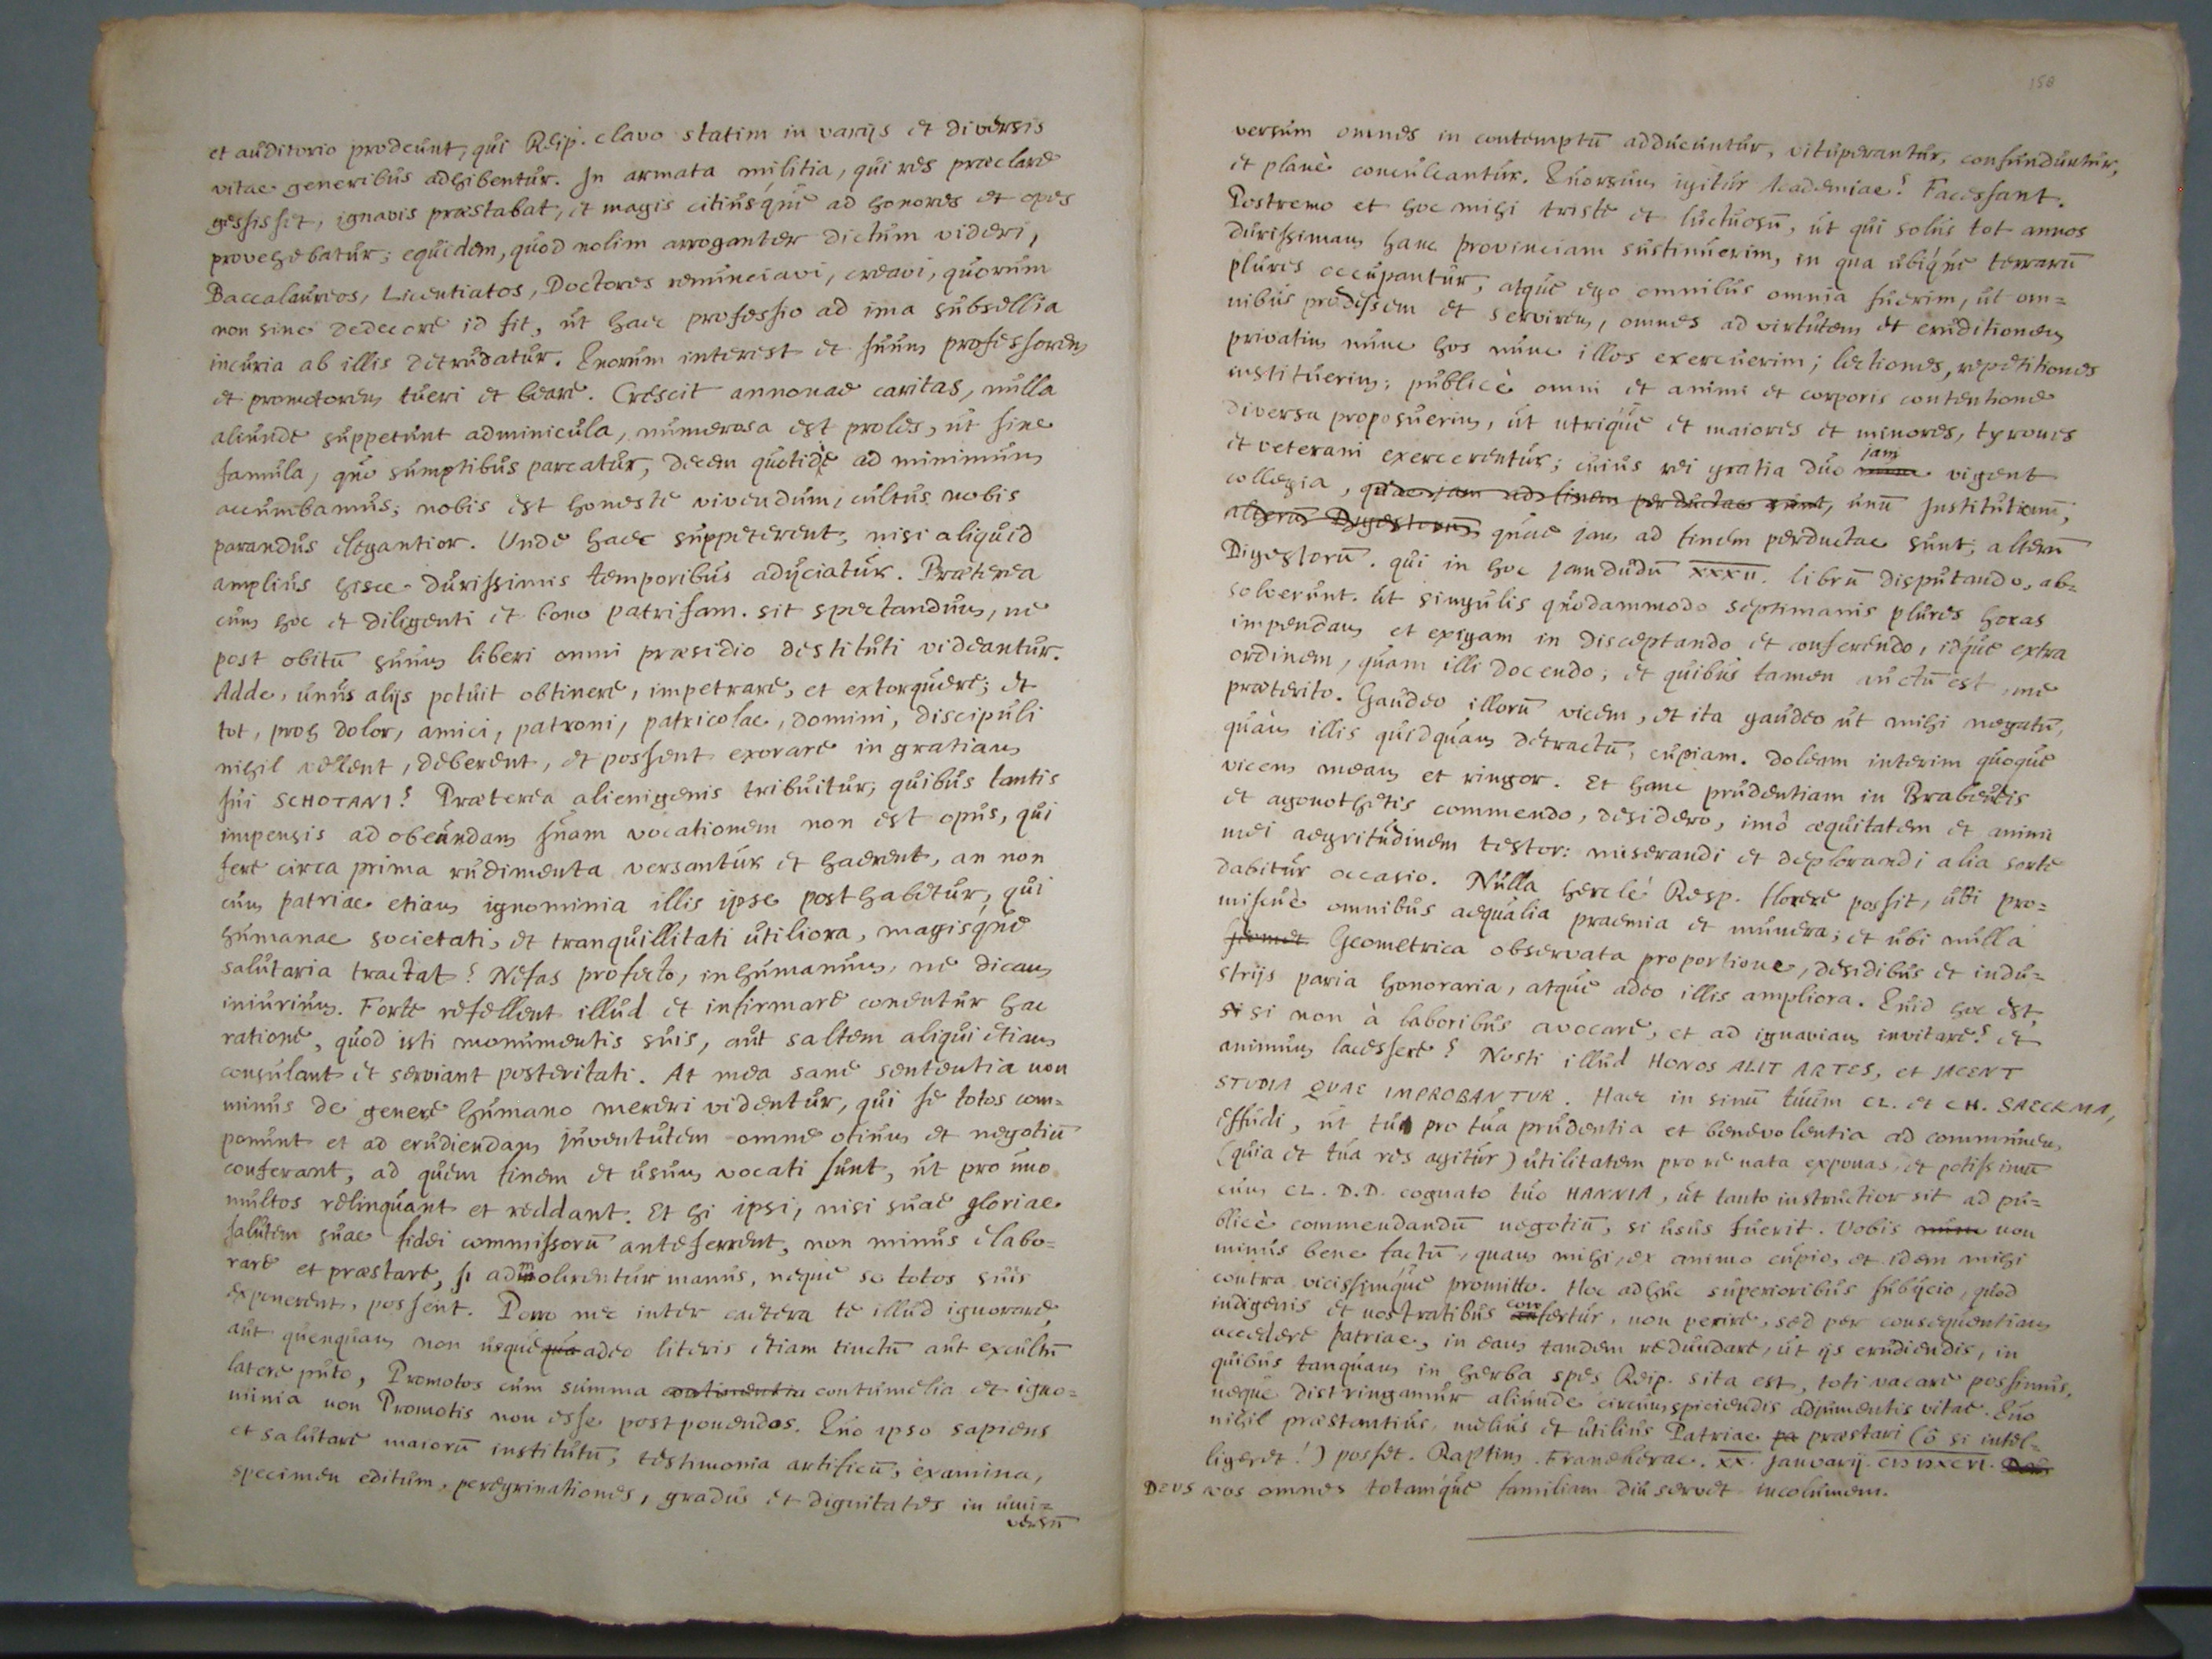 et auditorio prodeunt, qui Reip. clavo statim in varijs et diversis
vitae generibus adhibentur. In armata militia, qui res praeclare
gessisset, ignavis praestabat, et magis citiusque ad honores et opes
provehebatur; equidem, quod nolim arroganter dictum videri,
Baccalaureos, Licentiatos, Doctores renunciavi, creavi, quorum
non sine dedecore id fit, ut haec professio ad ima subsellia
incuria ab illis detrudatur. Quorum interest et suum professorem
et promotorem tueri et beare. Crescit annonae caritas, nulla
aliunde suppetunt adminicula, numerosa est proles, ut sine
famula, quo sumptibus parcatur, decem quotidie ad minimum
accumbamus; nobis est honeste vivendum, cultus nobis
parandus elegantior. Unde haec suppeterent, nisi aliquid
amplius hisce durissimis temporibus adijciatur. Praeterea
cum hoc et diligenti et bono patrifam. sit spectandum, ne
post obitū suum liberi omni praesidio destituti videantur.
Adde, unus alijs potuit obtinere, impetrare, et extorquere; et
tot, proh dolor, amici, patroni, patricolae, domini, discipuli
nihil vellent, deberent, et possent exorare in gratiam
sui SCHOTANI? Praeterea alienigenis tribuitur, quibus tantis
impensis ad obeundam suam vocationem non est opus, qui
fere circa prima rudimenta versantur et haerent, an non
cum patriae etiam ignominia illis ipse posthabetur, qui
humanae societati, et tranquillitati utiliora, magisque
salutaria tractat? Nefas profecto, inhumanum, ne dicam
iniurium. Forte refellent illud et infirmare conentur hac
ratione, quod isti monumentis suis, aut saltem aliqui etiam
consulant et serviant posteritati. At mea sane sententia non
minus de genere humano mereri videntur, qui se totos com=
ponunt et ad erudiendam juventutem omne otium et negotiū
conferant, ad quem finem et usum vocati sunt, ut pro uno
multos relinquant et reddant. Et hi ipsi, nisi suae gloriae
salutem suae fidei commissorū anteferrent, non minus elabo=
rare et praestare, si admolirentur manus, neque se totos suis
exponerent, possent. Porro nec inter caetera te illud ignorare,
aut quenquam non usque qua adeo literis etiam tinctū aut excultū
latere puto, Promotos cum summa contumelia et igno=
minia non Promotis non esse postponendos. Quo ipso sapiens
et salutare maiorū institutū, testimonia artificū, examina,
specimen editum, peregrinationes, gradus et dignitates in uni=
versū
158
versum omnes in contemptū adducuntur, vituperantur, confunduntur,
et planè conculcantur. Quorsum igitur Academiae? Facessant.
Postremo et hoc mihi triste et luctuosū, ut qui solus tot annos
durissimam hanc provinciam sustinuerim, in qua ubique terrarū
plures occupantur, atque ego omnibus omnia fuerim, ut om=
nibus prodessem et servirem, omnes ad virtutem et eruditionem
privatim nunc hos nunc illos exercuerim; lectiones, repetitiones
instituerim; publicè omni et animi et corporis contentione
diversa proposuerim, ut utrique et maiores et minores, tyrones
et veterani exercerentur; cuius rei gratia duo nunc jam vigent
collegia, quae jam ad finem perductae sunt, unū Institutionū;
alterū Digestorū quae jam ad finem perductae sunt; alterū
Digestorū. qui in hoc jamdudū XXXII. librū disputando, ab=
solverunt. ut singulis quodammodo septimanis plures horas
impendam et exigam in disceptando et conferendo, idque extra
ordinem, quam illi docendo; et quibus tamen auctū est, me
praeterito. Gaudeo illorū vicem, et ita gaudeo ut mihi negatū,
quàm illis quidquam detractū, cupiam. Doleam interim quoque
vicem meam et ringor. Et hanc prudentiam in Brabeutis
et agonothetis commendo, desidero, imò aequitatem et animi
mei aegritudinem testor: miserandi et deplorandi alia sorte
dabitur occasio. Nulla herclè Resp. florere possit, ubi pro=
miscuè omnibus aequalia praemia et munera; et ubi nullâ
Geometrica observata proportione, desidibus et indu=
strijs paria honoraria, atque adeo illis ampliora. Quid hoc est,
si si non à laboribus avocare, et ad ignaviam invitare? et
animum lacessere? Nosti illud HONOS ALIT ARTES, et JACENT
STUDIA QUAE IMPROBANTUR. Haec in sinū tuum CL. et CH. SAECKMA,
effudi, ut tu pro tua prudentia et benevolentia ad communem
(quia et tua res agitur) utilitatem pro re nata exponas, et potissimū
cum CL. D.D. cognato tuo HANNIA, ut tanto instructior sit ad pu=
blicè commendandū negotiū, si usus fuerit. Vobis nunc non
minus bene factū, quam mihi, ex animo cupio, et idem mihi
contra vicissimque promitto. Hoc adhuc superioribus subijcio, quod
indigenis et nostratibus confertur, non perire, sed per consequentiam
accedere patriae, in eam tandem redundare, ut ijs erudiendis, in
quibus tanquam in herba spes Reip. sita est, toti vacare possimus,
neque distringamur aliunde circumspiciendis adjumentis vitae. Quo
nihil praestantius, melius et utilius Patriae pa praestari (ô si intel=
ligeret!) posset. Raptim. Franekerae. XX. Januarij. CIƆ IƆXCVI. Deus
DEUS vos omnes totamque familiam diu servet incolumem.